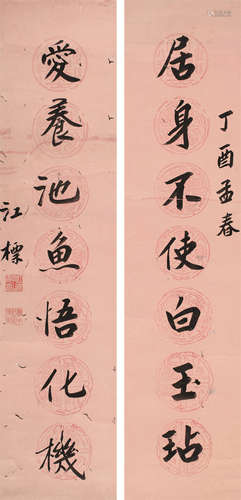 丁酉孟春
居身不使白玉玷
愛養池魚悟化機
江標